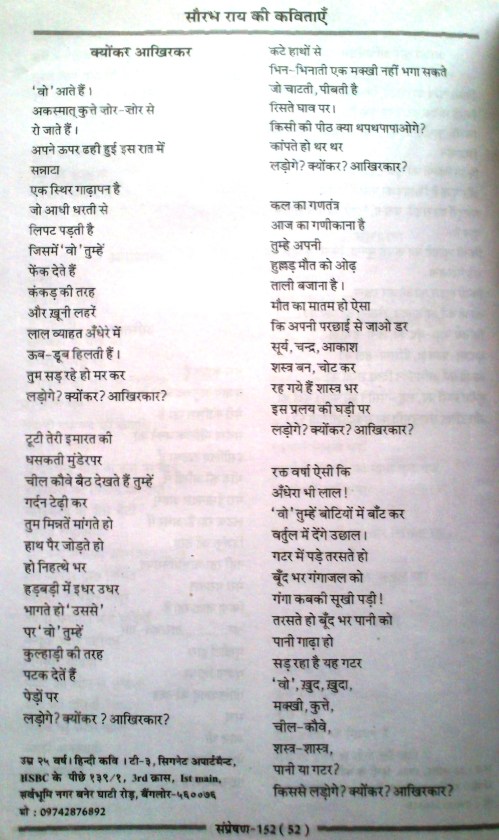 सौरभ राय की कविताएँ
क्योंकर आखिरकर
'वो' आते हैं।
अकस्मात् कुत्ते ज़ोर-ज़ोर से
रो जाते हैं।
अपने ऊपर ढही हुई इस रात में
सन्नाटा
एक स्थिर गाढ़ापन है
जो आधी धरती से
लिपट पड़ती है
जिसमें 'वो' तुम्हें
फेंक देते हैं
कंकड़ की तरह
और ख़ूनी लहरें
लाल व्याहत अँधेरे में
ऊब-डूब हिलती हैं।
तुम सड़ रहे हो मर कर
लड़ोगे? क्योंकर? आखिरकार?
टूटी तेरी इमारत की
धसकती मुंडेरपर
चील कौवे बैठ देखते हैं तुम्हें
गर्दन टेढ़ी कर
तुम मिन्नतें मांगते हो
हाथ पैर जोड़ते हो
हो निहत्थे भर
हड़बड़ी में इधर उधर
भागते हो 'उससे'
पर 'वो' तुम्हें
कुल्हाड़ी की तरह
पटक देतें हैं
पेड़ों पर
लड़ोगे? क्योंकर ? आखिरकार?
उम्र २५ वर्ष। हिन्दी कवि । टी-३, सिगनेट अपार्टमेन्ट,
HSBC के पीछे १३९/१, 3rd क्रास, 1st main,
सर्वभूमि नगर बनेर घाटी रोड़, बैंगलोर-५६००७६
मो : 09742876892
कटे हाथों से
भिन-भिनाती एक मक्खी नहीं भगा सकते
जो चाटती, पीबती है
रिसते घाव पर।
किसी की पीठ क्या थपथपापाओगे?
कांपते हो थर थर
लड़ोगे? क्योंकर? आखिरकार?
कल का गणतंत्र
आज का गणीकाना है
तुम्हे अपनी
हुल्लड़ मौत को ओढ़
ताली बजाना है।
मौत का मातम हो ऐसा
कि अपनी परछाई से जाओ डर
सूर्य, चन्द्र, आकाश
शस्त्र बन, चोट कर
रह गये हैं शास्त्र भर
इस प्रलय की घड़ी पर
लड़ोगे? क्योंकर? आखिरकार?
रक्त वर्षा ऐसी कि
अँधेरा भी लाल!
'वो' तुम्हें बोटियों में बाँट कर
वर्तुल में देंगे उछाल।
गटर में पड़े तरसते हो
बूँद भर गंगाजल को
गंगा कबकी सूखी पड़ी!
तरसते हो बूँद भर पानी को
पानी गाढ़ा हो
सड़ रहा है यह गटर
'वो', ख़ुद, ख़ुदा,
मक्खी, कुत्ते,
चील-कौवे,
शस्त्र-शास्त्र,
पानी या गटर?
किससे लड़ोगे? क्योंकर? आखिरकार?
संप्रेषण-152 ( 52 )